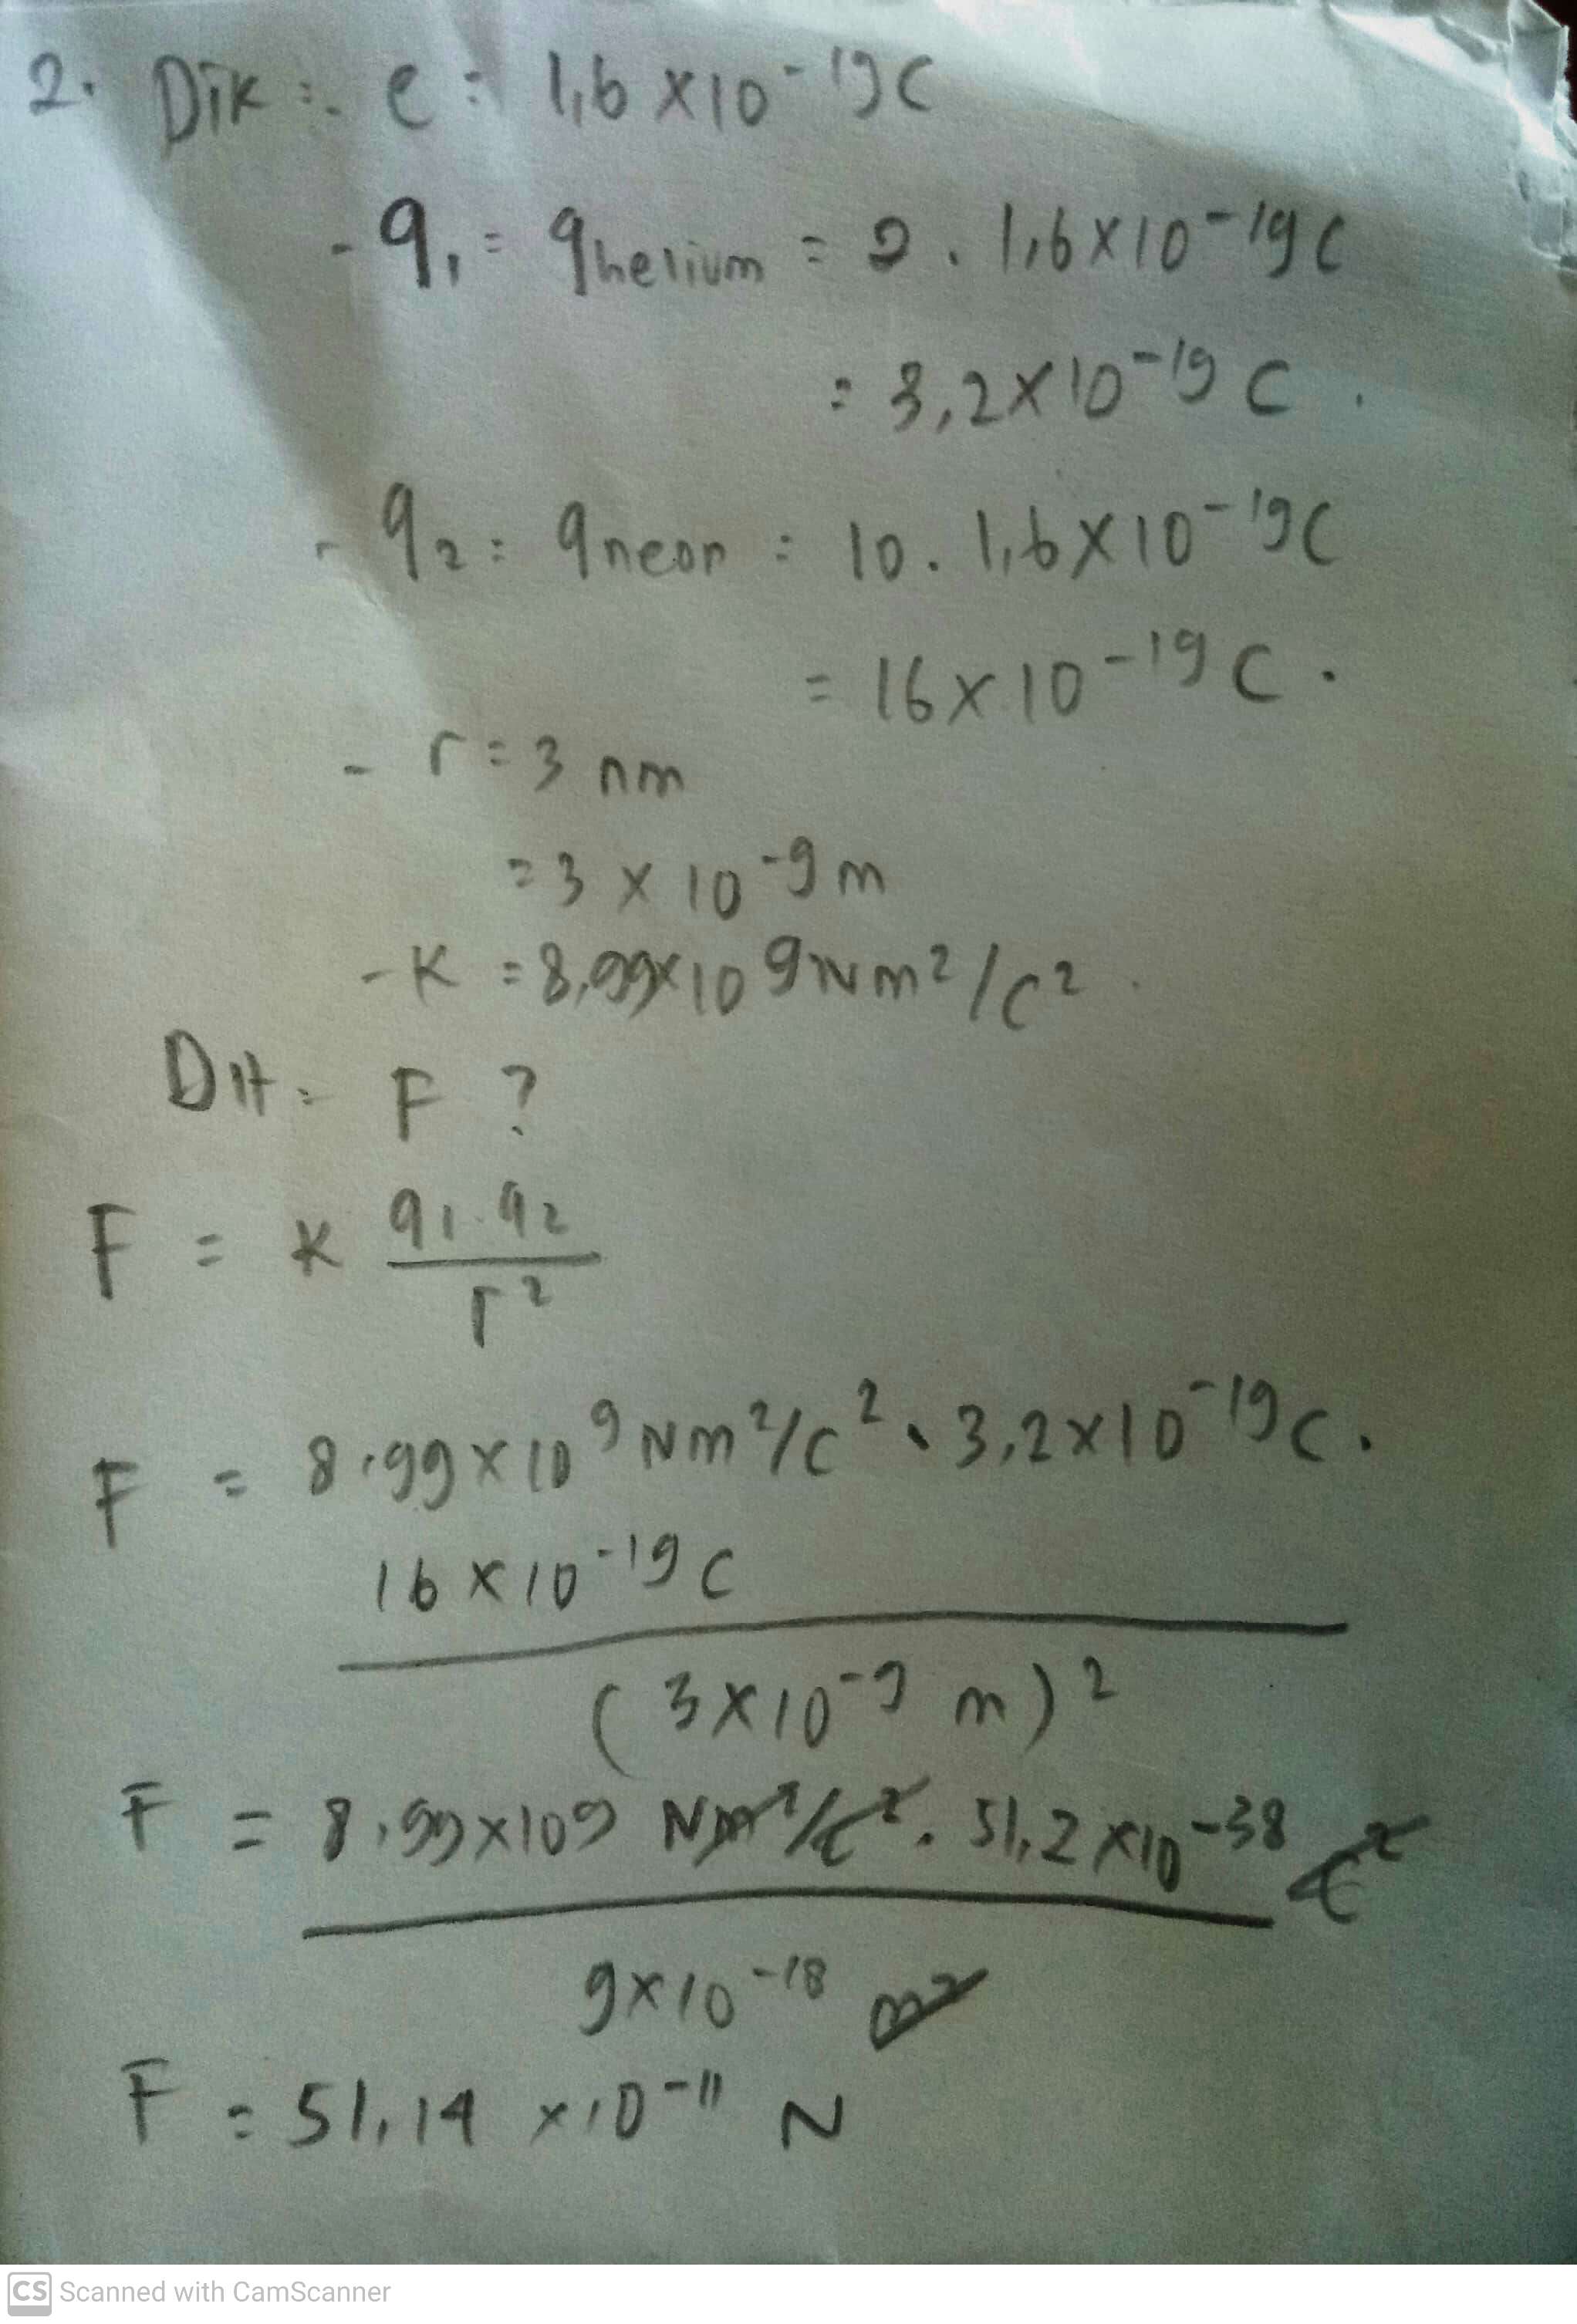 2. Dik : e = 1,6 x 10⁻¹⁹ C
- q₁ = qhelium = 2 . 1,6 x 10⁻¹⁹ C
= 3,2 x 10⁻¹⁹ C .
- q₂ = qneon = 10 . 1,6 x 10⁻¹⁹ C
= 16 x 10⁻¹⁹ C .
- r = 3 nm
= 3 x 10⁻⁹ m
- K = 8,99 x 10⁹ Nm²/C² .
Dit = F ?
F = K q₁ . q₂
r²
F = 8,99 x 10⁹ Nm²/C² . 3,2 x 10⁻¹⁹ C .
16 x 10⁻¹⁹ C
(3 x 10⁻⁹ m)²
F = 8,99 x 10⁹ Nm²/C² . 51,2 x 10⁻³⁸ C²
9 x 10⁻¹⁸ m²
F = 51,14 x 10⁻¹¹ N
CS Scanned with CamScanner